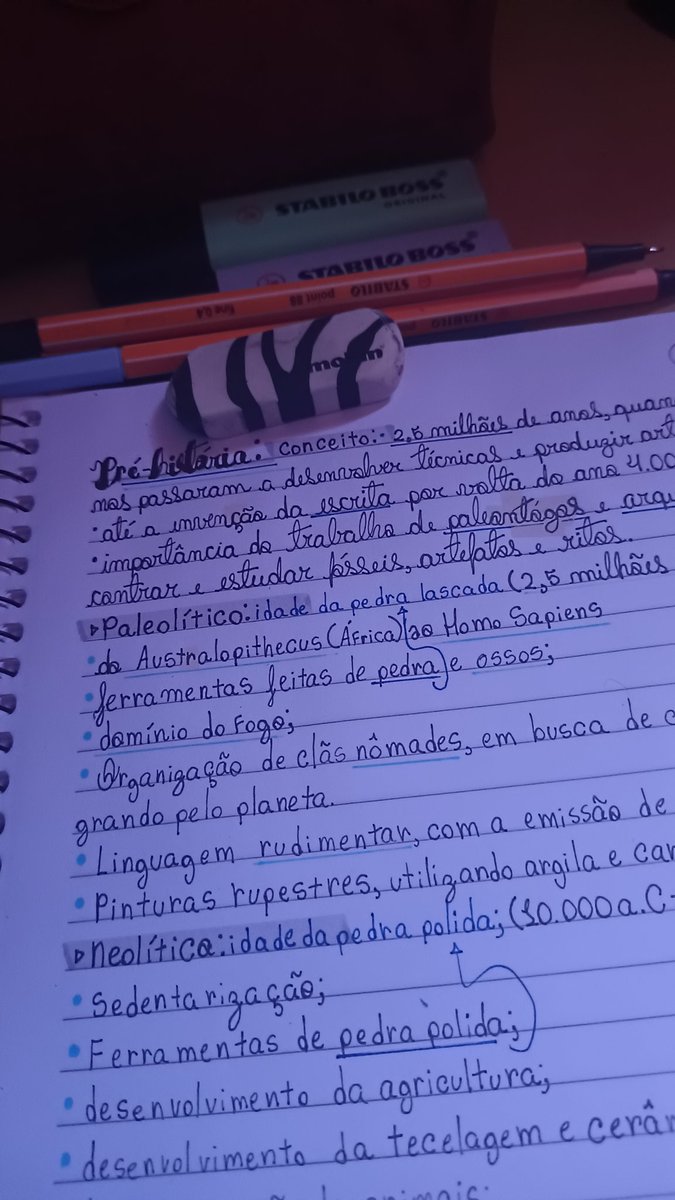 STABILO BOSS
ORIGINAL
STABILO BOSS
STABILO point 88 fine 0.4
STABILO
Pré-história: conceito:· 2,5 milhões de anos, quan
mos passaram a desenvolver técnicas e produzir art
· até a invenção da escrita por volta do ano 4.00
· importância do trabalho de paleontógos e arqu
contrar e estudar fósseis, artefatos e ritos.
▷Paleolítico: idade da pedra lascada (2,5 milhões
• do Australopithecus (África) ao Homo Sapiens
• ferramentas feitas de pedra e ossos;
• domínio do Fogo;
• Organização de clãs nômades, em busca de c
grando pelo planeta.
• Linguagem rudimentar, com a emissão de
• Pinturas rupestres, utilizando argila e car
▷Neolítica: idade da pedra polida; (10.000 a.C-
• Sedentarização;
• Ferramentas de pedra polida;
• desenvolvimento da agricultura;
• desenvolvimento da tecelagem e cerâm
animais;